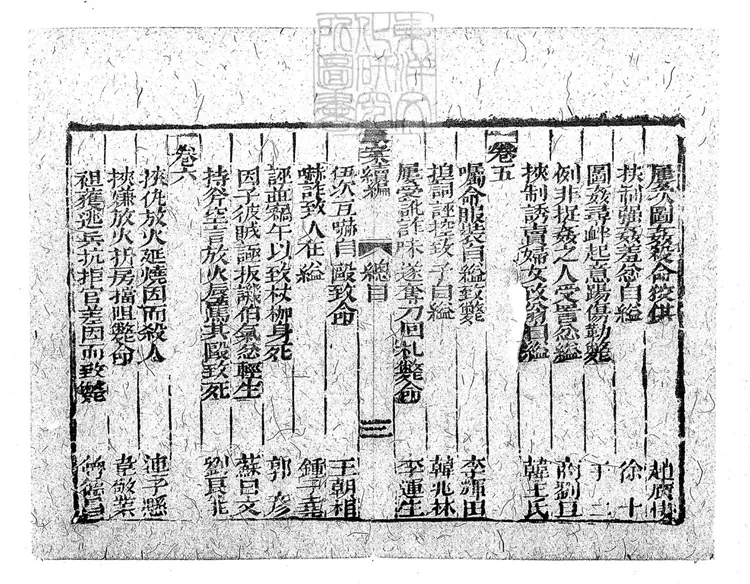 屢次圖姦殺命狡供 趙
挾制強姦羞忿自縊 徐十
圖姦尋衅起意踢傷勒斃 于二
例非捉姦之人受詈忿縊 商劉氏
挾制誘賣婦女致翁自縊 韓王氏
卷五
囑命服裝自縊致斃 李輝田
捏詞誣控致子自縊 韓兆林
屢受訛詐昧遂奪刀回札斃命 李運生
案續編 總目 三
伍次互嚇自毆致命 王朝相
嚇詐致人在縊 鍾子
誣並竊牛以致杖枷身死 郭彥
因子彼賊誣扳讖伯氣忿輕生 蘇日文
持斧空言放火辱罵其毆致死 劉長
卷六
挾仇放火延燒因而殺人 連子縣
挾嫌放火拆房擋咀斃命 韋敬業
袒獲逃兵抗拒官差因而致斃